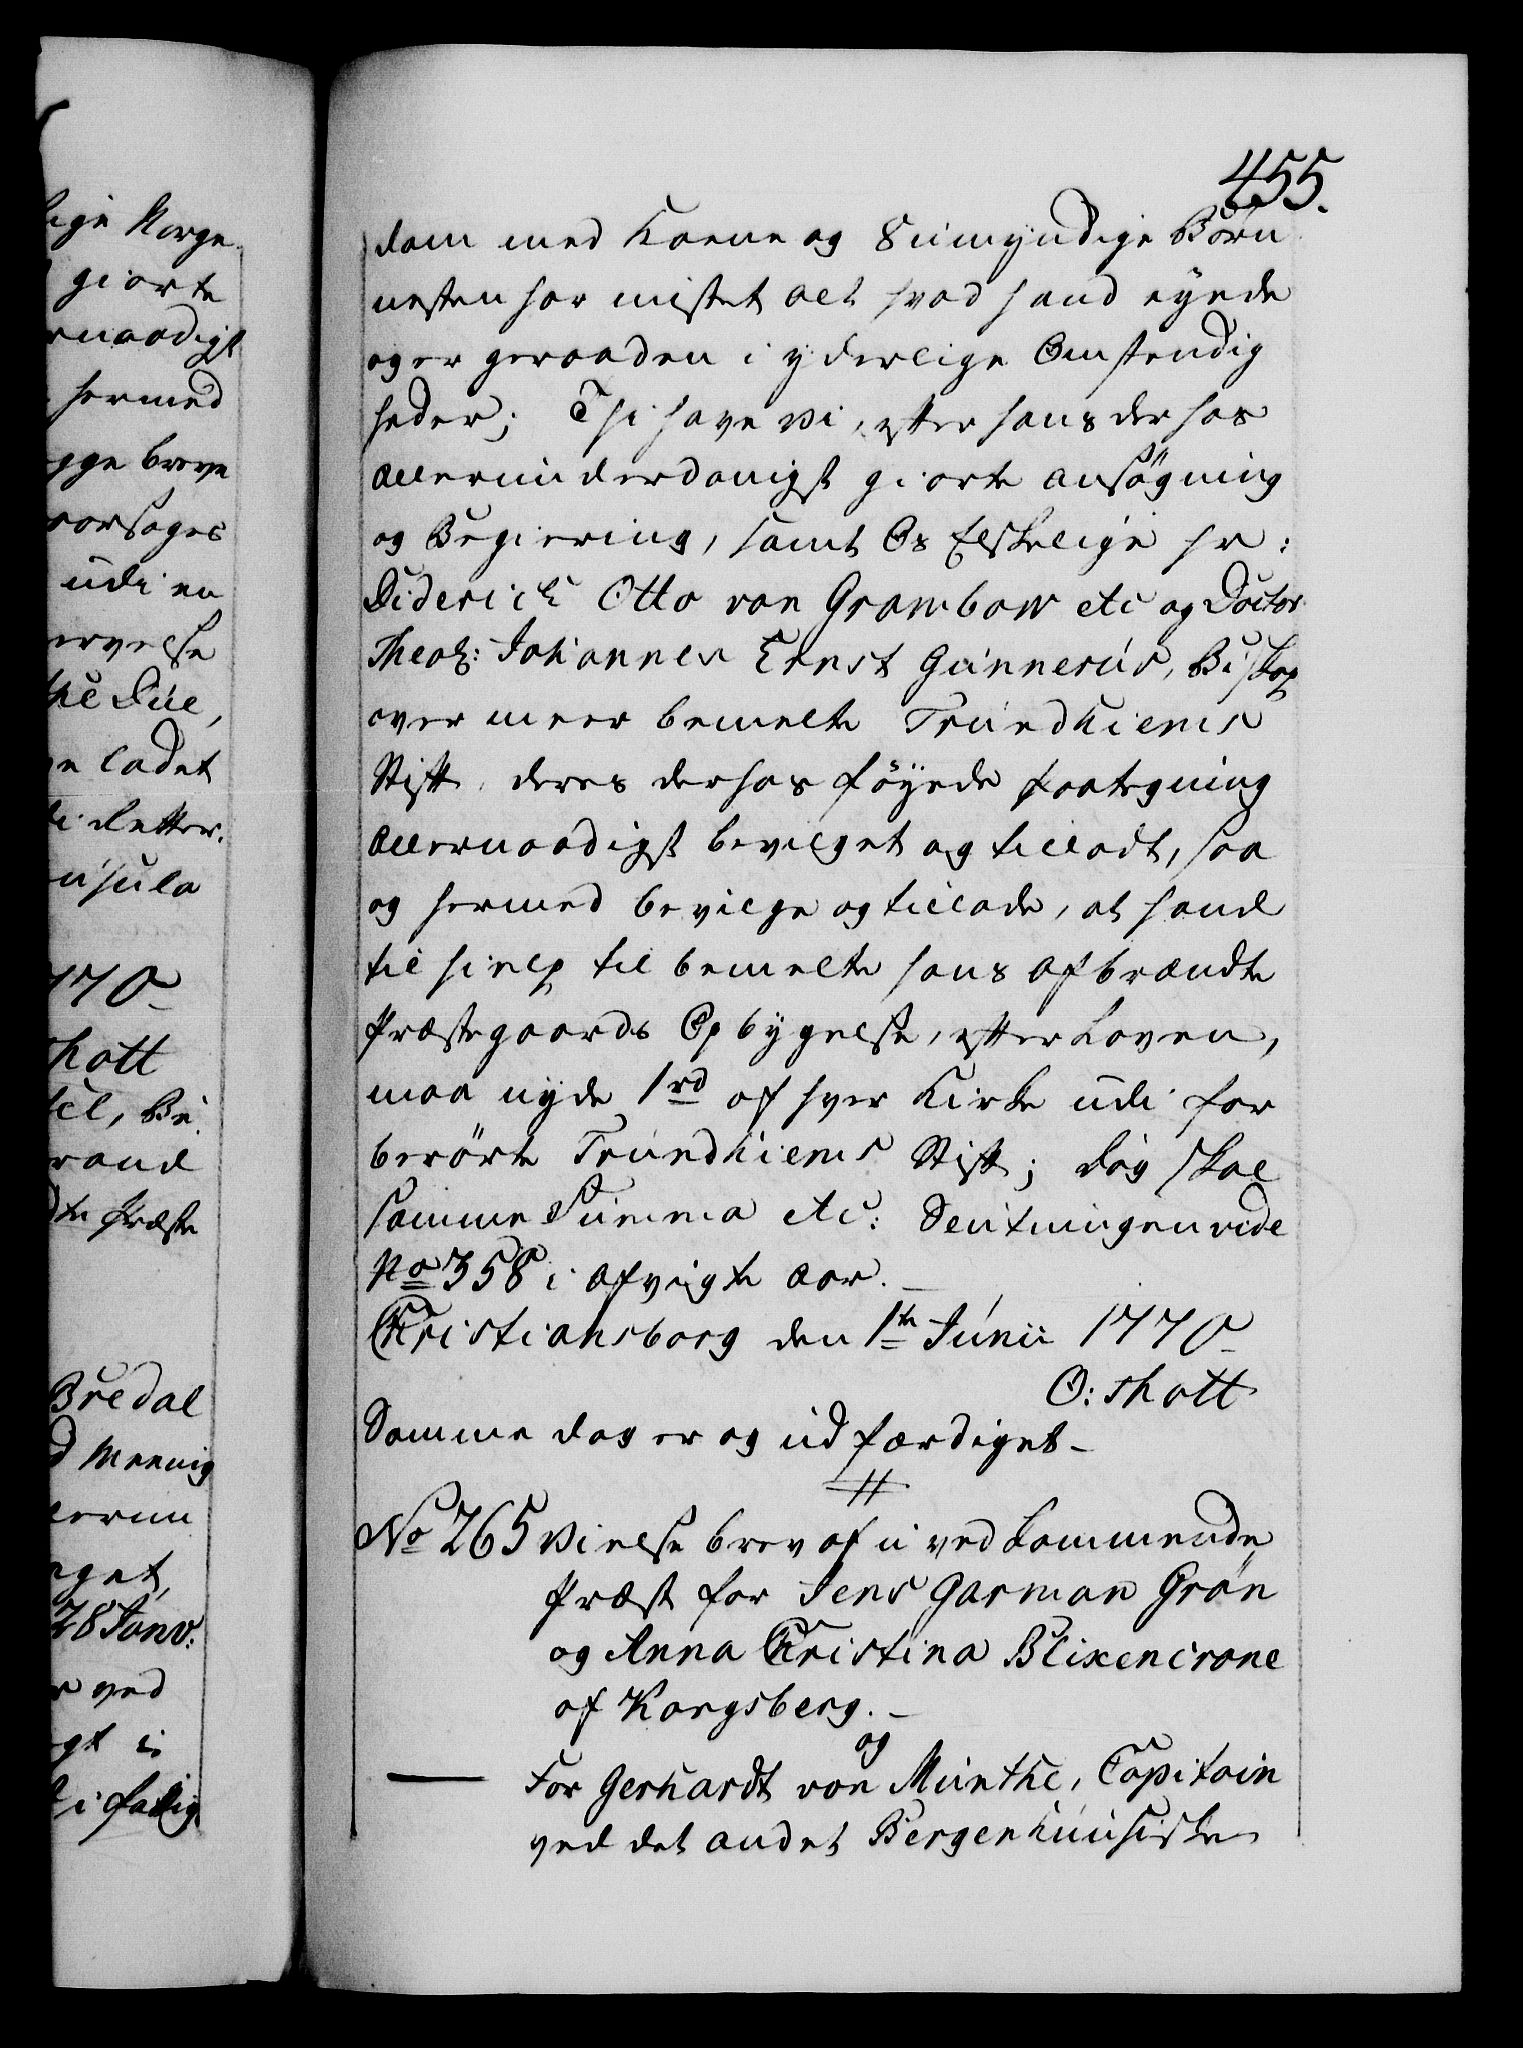 455.
dom med Kone og 8 umyndige Börn
nesten har mistet alt hvad hand eyede
og er geraaden i yderlige Omstendig
heder; Thi have vi, efter hans derhos
allerunderdanigst giorte ansögning
og Begiering, samt Os Elskelige Hr:
Diderich Otto von Grambow etc og Doctor
Theol: Johannes Ernst Gunnerus, Biskop
over meer bemelte Trundhiems
Stift, deres derhos föyede paategning
allernaadigst bevilget og tilladt, saa
og hermed bevilge og tillade, at hand
til hielp til bemelte hans afbrændte
Præstegaards Opbygelse, efter Loven,
maa nyde 1 rd af hver Kirke udi for
berörte Trundhiems Stift; dog skal
samme Summa etc: Slutningen vide
No 358 i afvigte aar.
Christiansborg den 1te Junii 1770
O: Thott
Samme dag er og udfærdiget
No 265 Vielse brev af uvedkommende
Præst for Jens Garman Grön
og Anna Christina Blixencrone
af Kongsberg.
og
For Gerhardt von Munthe, Capitain
ved det andet Bergenhuusiske
lige Norge
giorte
rnaadigst
hermed
egge breve
aarsages
udi en
til Due,
e ladet
Retter.
usula
770
hott
til, Bu
rand
te Præste
Bredal
d Mennig
lerun
eget,
28 Janv:
ved
gt i